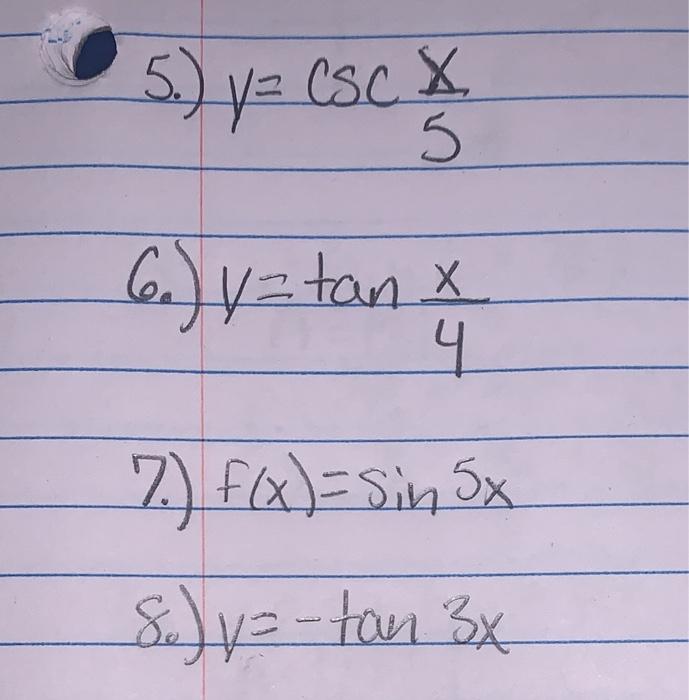 5.) y = csc x/5
6.) y = tan x/4
7.) f(x) = sin 5x
8.) y = -tan 3x